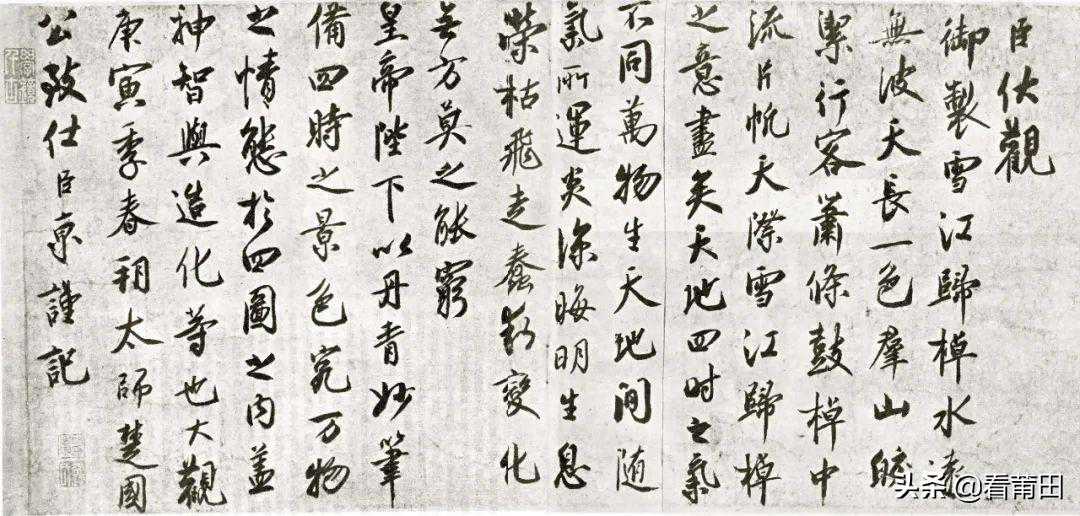 臣伏觀
御製雪江歸棹水遠
無波天長一色羣山皎
潔行客蕭條鼓棹中
流片帆天際雪江歸棹
之意盡矣天地四时之氣
不同萬物生天地間随
氣所運炎涼晦明生息
榮枯飛走蠢動變化
無方莫之能窮
皇帝陛下以丹青妙筆
備四時之景色究万物
之情態於四圖之内蓋
神智與造化等也大觀
庚寅季春朔太師楚國
公致仕臣京謹記
头条@看莆田